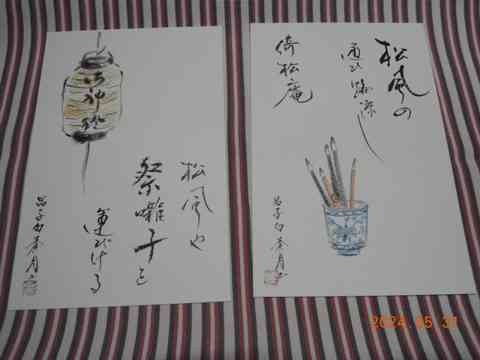 松風の
通ひ路涼し
倚松庵
晶子句 春月
松風や
祭囃子を
運びける
晶子句 春月
2024.05.31